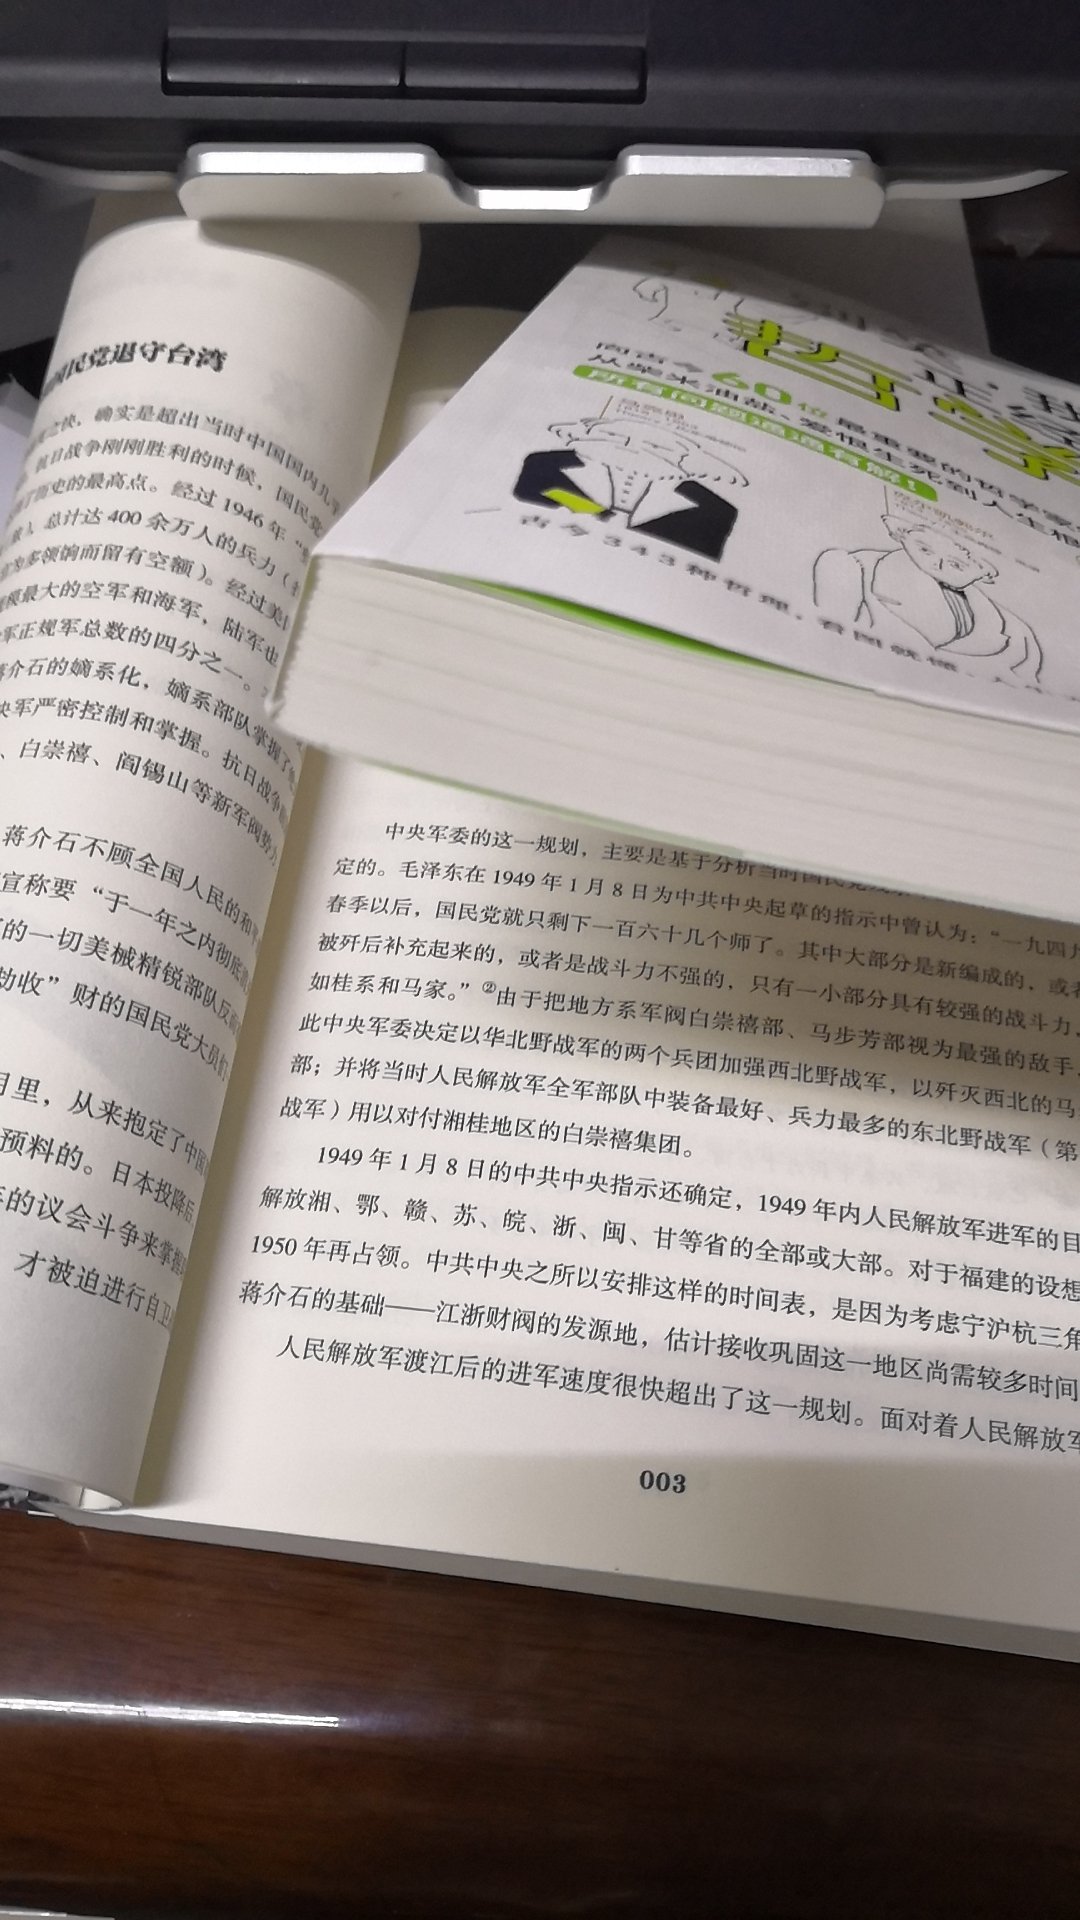 国民党退守台湾
之快，确实是超出当时中国国内几乎
抗日战争刚刚胜利的时候，国民党
历史的最高点。经过 1946 年“整
总计达 400 余万人的兵力（
为多领饷而留有空额）。经过美
模最大的空军和海军，陆军也
军正规军总数的四分之一。
蒋介石的嫡系化，嫡系部队掌握了
央军严密控制和掌握。抗日战争
、白崇禧、阎锡山等新军阀势力
蒋介石不顾全国人民的和平
宣称要“于一年之内彻底
的一切美械精锐部队反
劫收”财的国民党大员们
里，从来抱定了中国
预料的。日本投降后
的议会斗争来掌握
才被迫进行自卫
哲学
向古今60位最重要的哲学家
从柴米油盐、爱恨生死到人生
所有问题通通有解！
古今343种哲理，看图就懂
中央军委的这一规划，主要是基于分析当时国民党
定的。毛泽东在 1949 年 1 月 8 日为中共中央起草的指示中曾认为：“一九四九
春季以后，国民党就只剩下一百六十几个师了。其中大部分是新编成的，或者
被歼后补充起来的，或者是战斗力不强的，只有一小部分具有较强的战斗力，
如桂系和马家。”②由于把地方系军阀白崇禧部、马步芳部视为最强的敌手，
此中央军委决定以华北野战军的两个兵团加强西北野战军，以歼灭西北的马
部；并将当时人民解放军全军部队中装备最好、兵力最多的东北野战军（第
战军）用以对付湘桂地区的白崇禧集团。
1949 年 1 月 8 日的中共中央指示还确定，1949 年内人民解放军进军的目
解放湘、鄂、赣、苏、皖、浙、闽、甘等省的全部或大部。对于福建的设想
1950 年再占领。中共中央之所以安排这样的时间表，是因为考虑宁沪杭三角
蒋介石的基础——江浙财阀的发源地，估计接收巩固这一地区尚需较多时间
人民解放军渡江后的进军速度很快超出了这一规划。面对着人民解放军
003